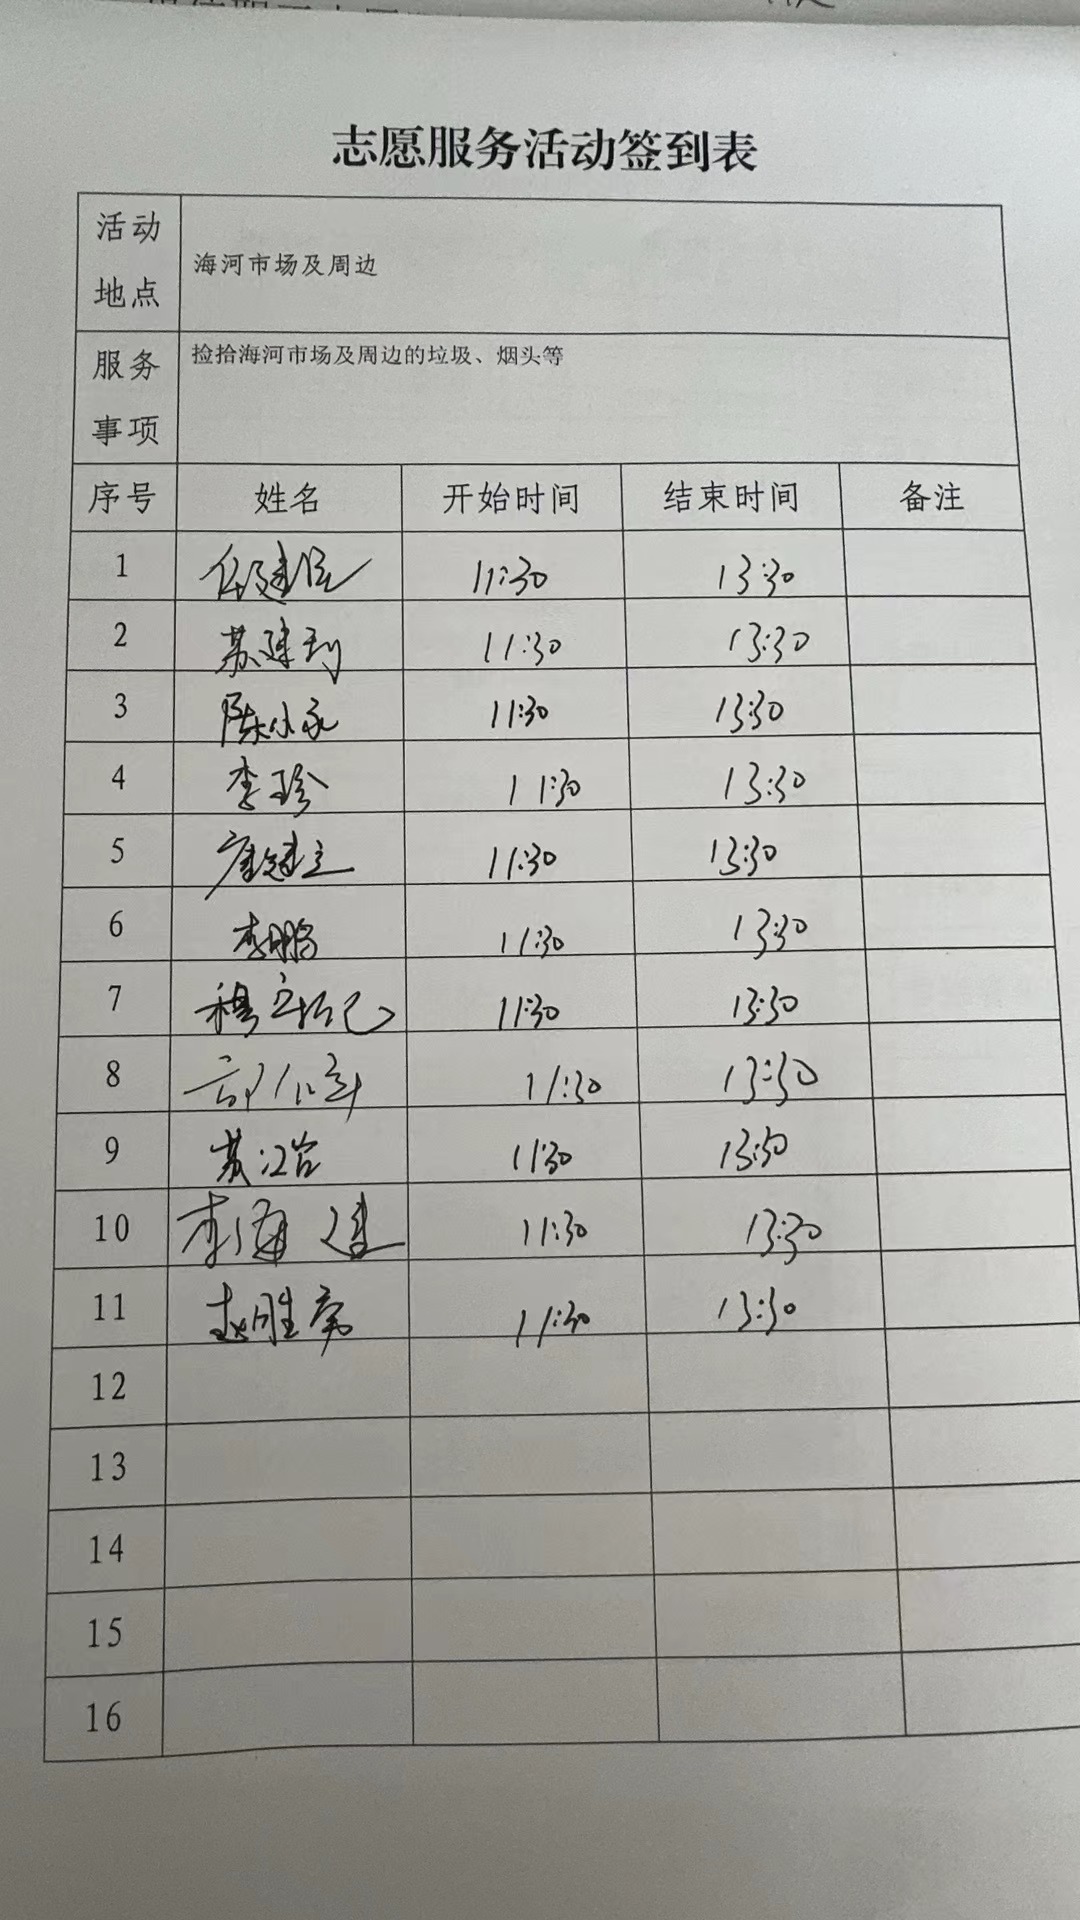 志愿服务活动签到表
活动地点 海河市场及周边
服务事项 捡拾海河市场及周边的垃圾、烟头等
序号 姓名 开始时间 结束时间 备注
1 11:30 13:30
2 苏建利 11:30 13:30
3 陈小永 11:30 13:30
4 李珍 11:30 13:30
5 11:30 13:30
6 李鹏 11:30 13:30
7 11:30 13:30
8 11:30 13:30
9 11:30 13:30
10 李海建 11:30 13:30
11 11:30 13:30
12
13
14
15
16